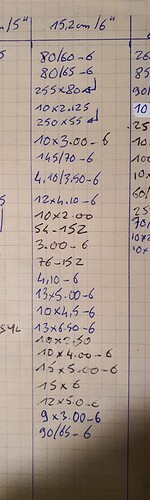 15,2cm/6"
80/60-6
80/65-6
255x80
10x2.125
250x55
10x3.00-6
145/70-6
4,10/3,50-6
12x4.10-6
10x2.00
54-152
3.00-6
76-152
4,10-6
13x5.00-6
10x4,5-6
13x6.50-6
10x2.50
10x4.00-6
15x5.00-6
15x6
12x5.0-6
9x3.00-6
90/65-6